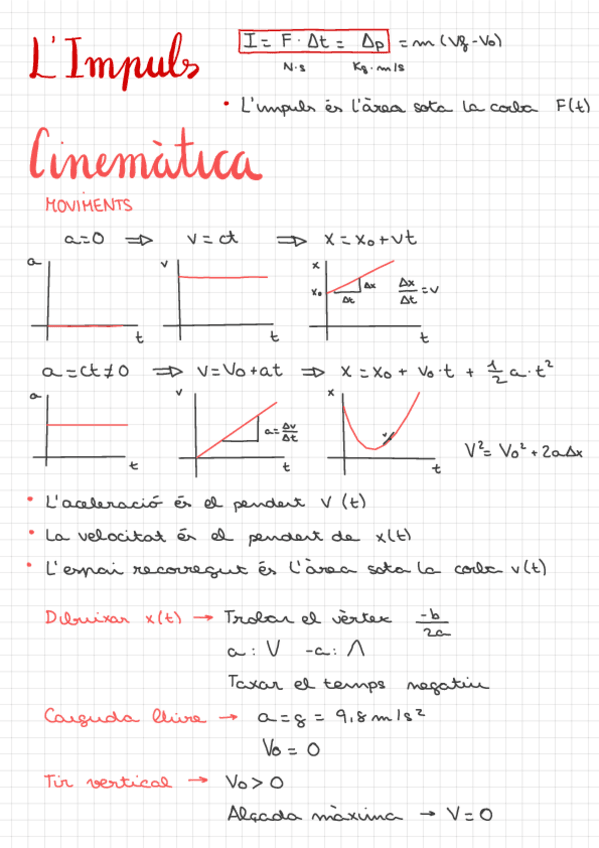 L'Impuls
I = F · Δt = Δp = m (Vf - V0)
N·s Kg·m/s
• L'impuls és l'àrea sota la corba F(t)
Cinemàtica
MOVIMENTS
a=0 ⇒ v = ct ⇒ x = x0 + vt
a t
v t
x x0 Δx Δt t Δx/Δt = v
a = ct ≠ 0 ⇒ v = V0 + at ⇒ x = x0 + v0·t + 1/2 a·t²
a t
v a = Δv/Δt t
x v t
V² = V0² + 2aΔx
• L'acceleració és el pendent V (t)
• La velocitat és el pendent de x(t)
• L'espai recorregut és l'àrea sota la corba v(t)
Dibuixar x(t) → Trobar el vèrtex -b/2a
a: V -a: Λ
Taxar el temps negatiu
Caiguda lliure → a = g = 9,8 m/s²
V0 = 0
Tir vertical → V0 > 0
Alçada màxima → V = 0